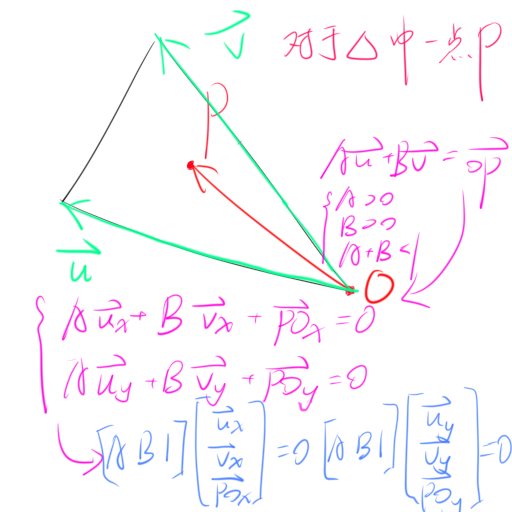 v⃗
对于△中一点P
P
Au⃗+Bv⃗=OP⃗
{A>0
B>0
A+B<1
u⃗
O
{Au⃗ₓ+Bv⃗ₓ+PO⃗ₓ=0
Au⃗y+Bv⃗y+PO⃗y=0
[A B 1][u⃗ₓ v⃗ₓ PO⃗ₓ]=0 [A B 1][u⃗y v⃗y PO⃗y]=0